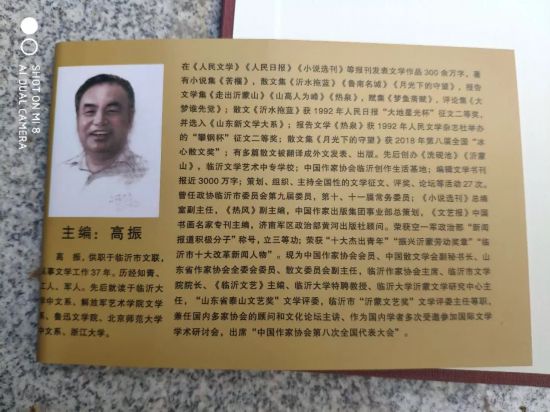 SHOT ON MI 8
AI DUAL CAMERA
主编：高振
高 振，供职于临沂市文联，
从事文学工作37年。历经知青、
工人、军人。先后就读于临沂大
学中文系、解放军艺术学院文学
系、鲁迅文学院、北京师范大学
中文系、浙江大学。
在《人民文学》《人民日报》《小说选刊》等报刊发表文学作品 300 余万字，著
有小说集《苦槠》，散文集《沂水拖蓝》《鲁南名城》《月光下的守望》，报告
文学集《走出沂蒙山》《山高人为峰》《热泉》，赋集《梦鱼斋赋》，评论集《大
梦谁先觉》；散文《沂水拖蓝》获 1992 年人民日报“大地星光杯”征文二等奖，
并选入《山东新文学大系》；报告文学《热泉》获 1992 年人民文学杂志社举办
的“攀钢杯”征文二等奖；散文集《月光下的守望》获 2018 年第八届全国“冰
心散文奖”；有多篇散文被翻译成外文发表、出版。先后创办《洗砚池》《沂蒙
山》，临沂文学艺术中专学校；中国作家协会临沂创作生活基地；编辑文学书刊
报近 3000 万字；策划、组织、主持全国性的文学征文、评奖、论坛等活动 27 次。
曾任政协临沂市委员会第九届委员，第十、十一届常务委员；《小说选刊》总编
室副主任，《热风》副主编，中国作家出版集团事业部总策划，《文艺报》中国
书画名家专刊主编；济南军区政治部黄河出版社顾问。荣获空一军政治部“新闻
报道积极分子”称号，立三等功；荣获“十大杰出青年”“振兴沂蒙劳动奖章”“临
沂市十大改革新闻人物”。现为中国作家协会会员、中国散文学会副秘书长、山
东省作家协会全委会委员、散文委员会副主任，临沂作家协会主席、临沂市文学
院院长、《临沂文艺》主编、临沂大学特聘教授、临沂大学沂蒙文学研究中心主
任，“山东省泰山文艺奖”文学评委，临沂市“沂蒙文艺奖”文学评委主任等职、
兼任国内多家协会的顾问和文化论坛主讲、作为国内学者多次受邀参加国际文学
学术研讨会，出席“中国作家协会第八次全国代表大会”。